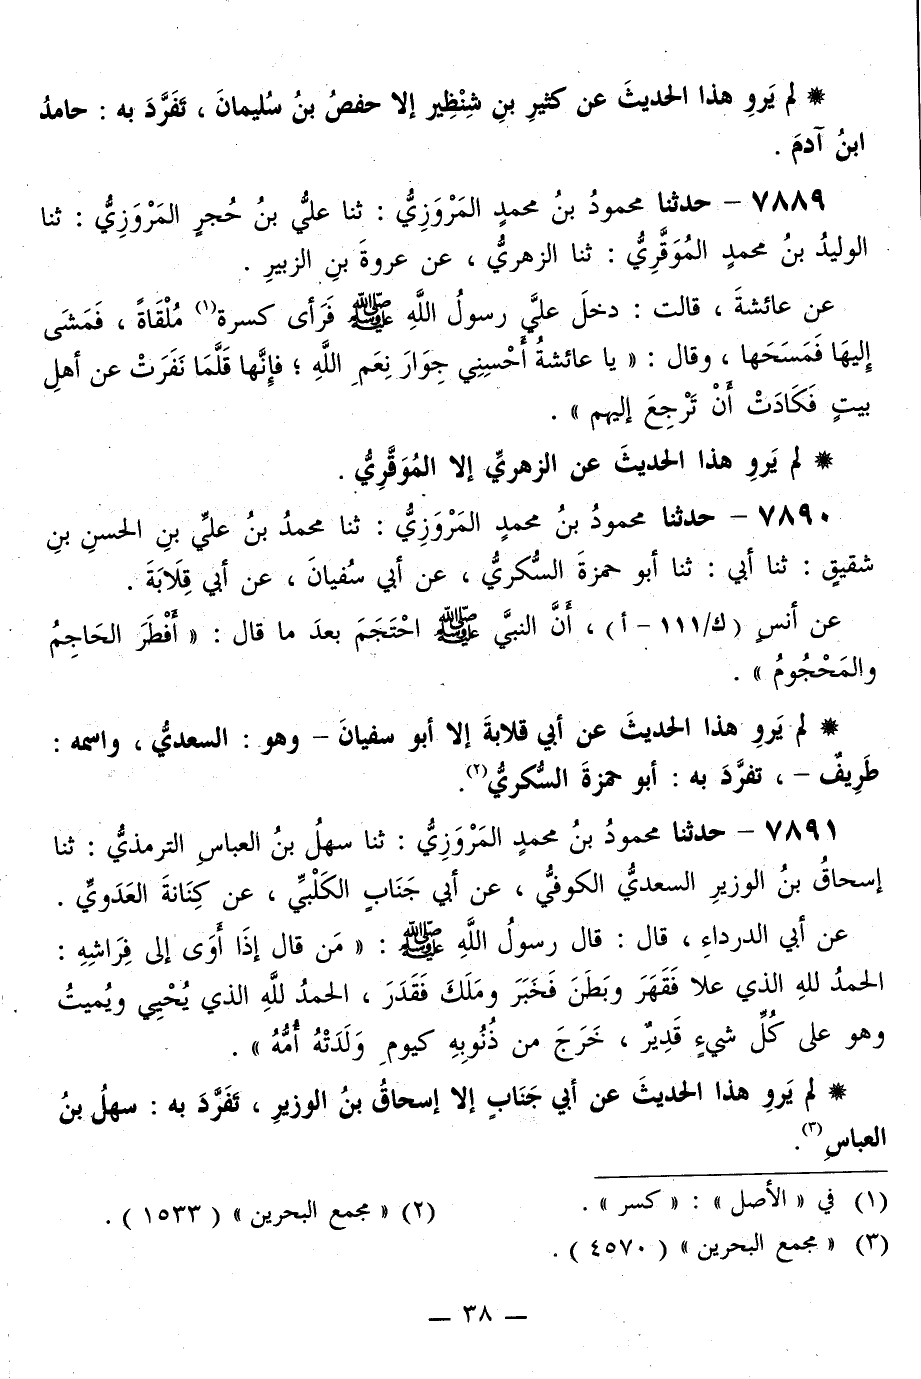 * لم يَروِ هذا الحديثَ عن كثيرِ بنِ شِنْظِير إلا حفصُ بنُ سُليمانَ ، تَفَرَّدَ به : حامدُ
ابنُ آدمَ .
٧٨٨٩ – حدثنا محمودُ بنُ محمدٍ المَرْوَزِيُّ : ثنا عليُّ بنُ حُجرٍ المَرْوَزِيُّ : ثنا
الوليدُ بنُ محمدٍ المُوَقَّرِيُّ : ثنا الزهريُّ ، عن عروةَ بنِ الزبيرِ .
عن عائشةَ ، قالت : دخلَ عليَّ رسولُ اللَّهِ ﷺ فَرَأى كسرة(١) مُلْقَاةً ، فَمَشَى
إليهَا فَمَسَحَها ، وقال : « يا عائشةُ أَحْسِنِي جِوَارَ نِعَمِ اللَّهِ ؛ فإنَّها قَلَّمَا نَفَرَتْ عن أهلِ
بيتٍ فَكَادَتْ أَنْ تَرْجِعَ إليهم » .
* لم يَروِ هذا الحديثَ عن الزهريِّ إلا المُوَقَّرِيُّ .
٧٨٩٠ – حدثنا محمودُ بنُ محمدٍ المَرْوَزِيُّ : ثنا محمدُ بنُ عليِّ بنِ الحسنِ بنِ
شقيقٍ : ثنا أبي : ثنا أبو حمزةَ السُّكريُّ ، عن أبي سُفيانَ ، عن أبي قِلَابَةَ .
عن أنسٍ (ك/١١١ – أ) ، أَنَّ النبيَّ ﷺ احْتَجَمَ بعدَ ما قال : « أَفْطَرَ الحَاجِمُ
والمَحْجُومُ » .
* لم يَروِ هذا الحديثَ عن أبي قلابةَ إلا أبو سفيانَ – وهو : السعديُّ ، واسمه :
طَرِيفٌ – ، تفرَّدَ به : أبو حمزةَ السُّكريُّ(٢).
٧٨٩١ – حدثنا محمودُ بنُ محمدٍ المَرْوَزِيُّ : ثنا سهلُ بنُ العباسِ الترمذيُّ : ثنا
إسحاقُ بنُ الوزيرِ السعديُّ الكوفيُّ ، عن أبي جَنَابٍ الكَلْبيِّ ، عن كِنَانةَ العَدَويِّ .
عن أبي الدرداءِ ، قال : قال رسولُ اللَّهِ ﷺ : « مَن قال إذَا أَوَى إلى فِرَاشِهِ :
الحمدُ للهِ الذي علا فَقَهَرَ وبَطَنَ فَخَبَرَ ومَلَكَ فَقَدَرَ ، الحمدُ للَّهِ الذي يُحْيِي ويُميتُ
وهو على كُلِّ شيءٍ قَدِيرٌ ، خَرَجَ من ذُنُوبِهِ كيومِ وَلَدَتْهُ أُمُّهُ » .
* لم يَروِ هذا الحديثَ عن أبي جَنَابٍ إلا إسحاقُ بنُ الوزيرِ ، تَفَرَّدَ به : سهلُ بنُ
العباسِ(٣).
(١) في « الأصل » : « كسر » . (٢) « مجمع البحرين » ( ١٥٣٣ ) .
(٣) « مجمع البحرين » ( ٤٥٧٠ ) .
— ٣٨ —